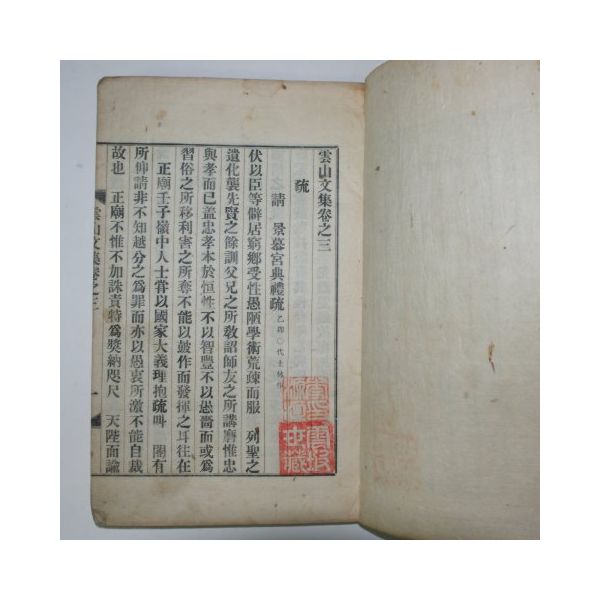 雲山文集卷之三
疏
請 景慕宮典禮疏乙卯○代士林作
伏以臣等僻居窮鄉受性愚陋學術荒疎而服 列聖之
遺化襲先賢之餘訓父兄之所敎詔師友之所講磨惟忠
與孝而已盖忠孝本於恒性不以智豐不以愚嗇而或爲
習俗之所移利害之所奪不能以鼓作而發揮之耳往在
正廟壬子嶺中人士甞以國家大義理抱疏叫 閤有
所仰請非不知越分之爲罪而亦以愚衷所激不能自裁
故也 正廟不惟不加誅責特爲奬納咫尺 天陛面諭
雲山文集卷之三
一